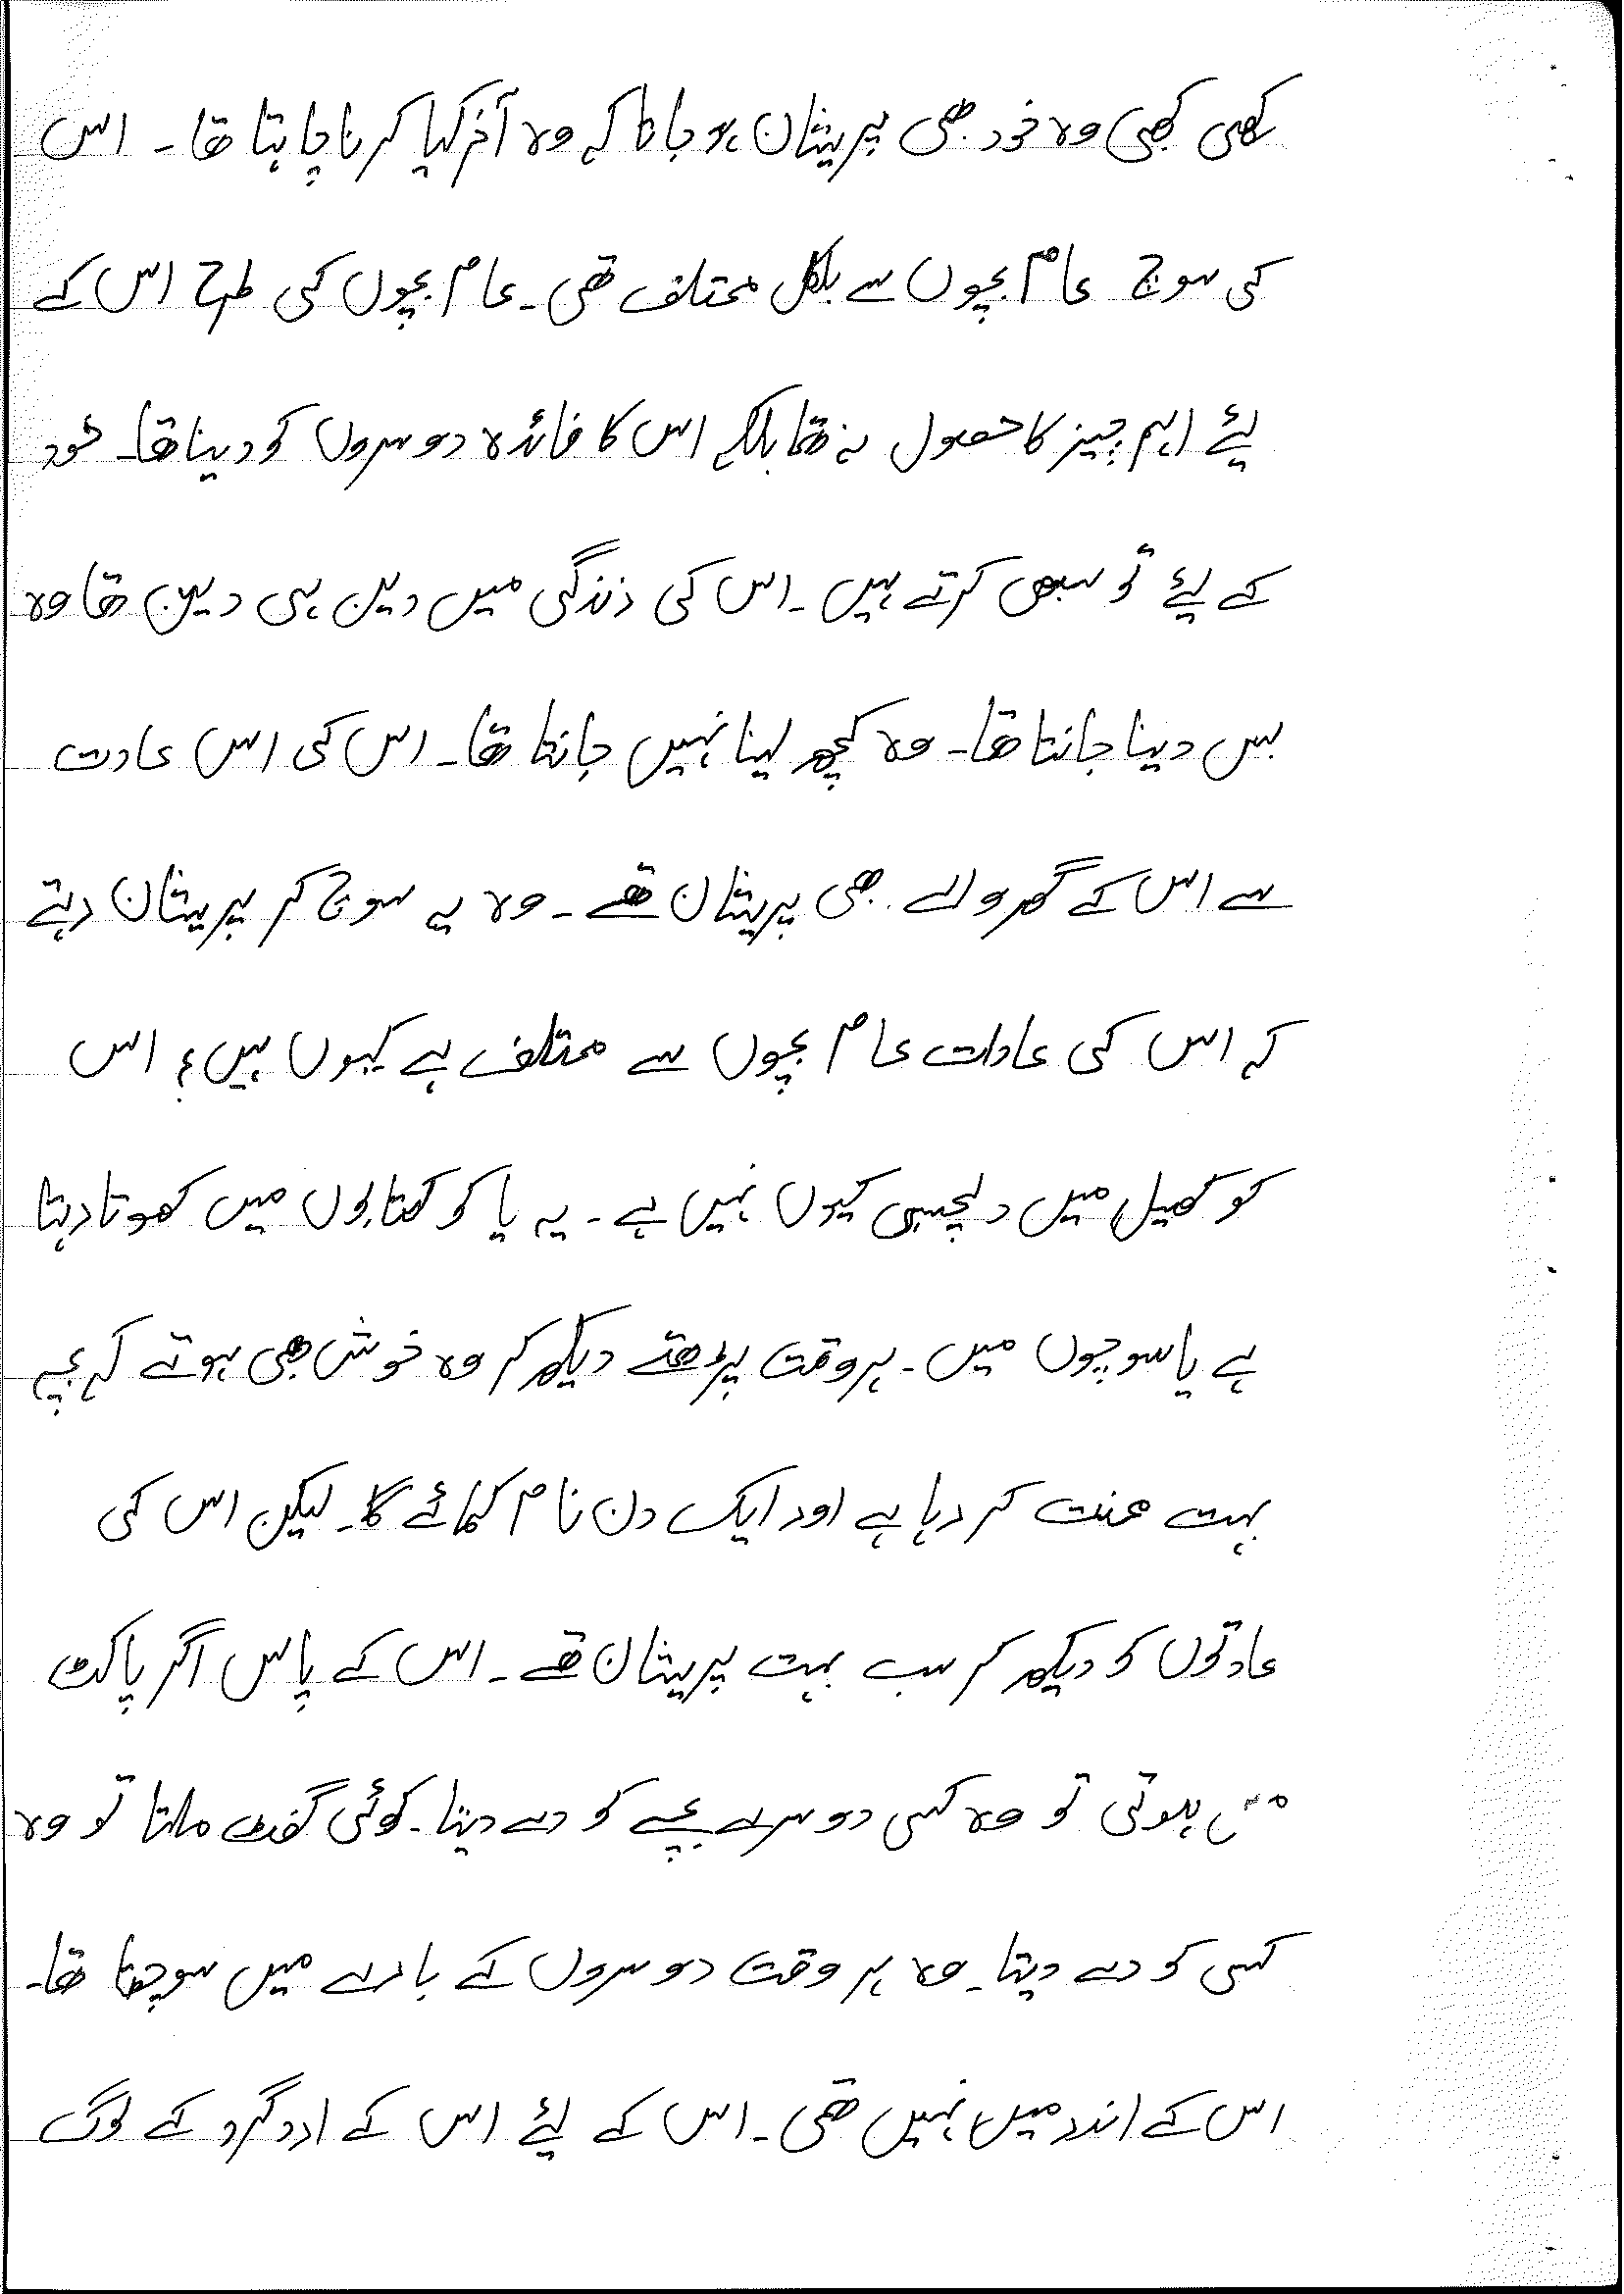 کبھی کبھی وہ خود بھی پریشان ہو جاتا کہ وہ آخر کیا کرنا چاہتا تھا۔ اس
کی سوچ عام بچوں سے بلکل مختلف تھی۔ عام بچوں کی طرح اس کے
لئے اہم چیز کا حصول نہ تھا بلکہ اس کا فائدہ دوسروں کو دینا تھا۔ خود
کے لئے تو سبھی کرتے ہیں۔ اس کی زندگی میں دین ہی دین تھا وہ
بس دینا جانتا تھا۔ وہ کچھ لینا نہیں جانتا تھا۔ اس کی اس عادت
سے اس کے گھر والے بھی پریشان تھے۔ وہ یہ سوچ کر پریشان رہتے
کہ اس کی عادات عام بچوں سے مختلف ہے کیوں ہیں؟ اس
کو کھیل میں دلچسپی کیوں نہیں ہے۔ یہ یا کو کتابوں میں کھوتا رہتا
ہے یا سوچوں میں۔ ہر وقت پڑھتے دیکھ کر وہ خوش بھی ہوتے کہ بچہ
بہت محنت کر رہا ہے اور ایک دن نام کمائے گا۔ لیکن اس کی
عادتوں کو دیکھ کر سب بہت پریشان تھے۔ اس کے پاس اگر پاکٹ
منی ہوتی تو وہ کسی دوسرے بچے کو دے دیتا۔ کوئی گفٹ ملتا تو وہ
کسی کو دے دیتا۔ وہ ہر وقت دوسروں کے بارے میں سوچتا تھا۔
اس کے اندر میں نہیں تھی۔ اس کے لئے اس کے اردگرد کے لوگ